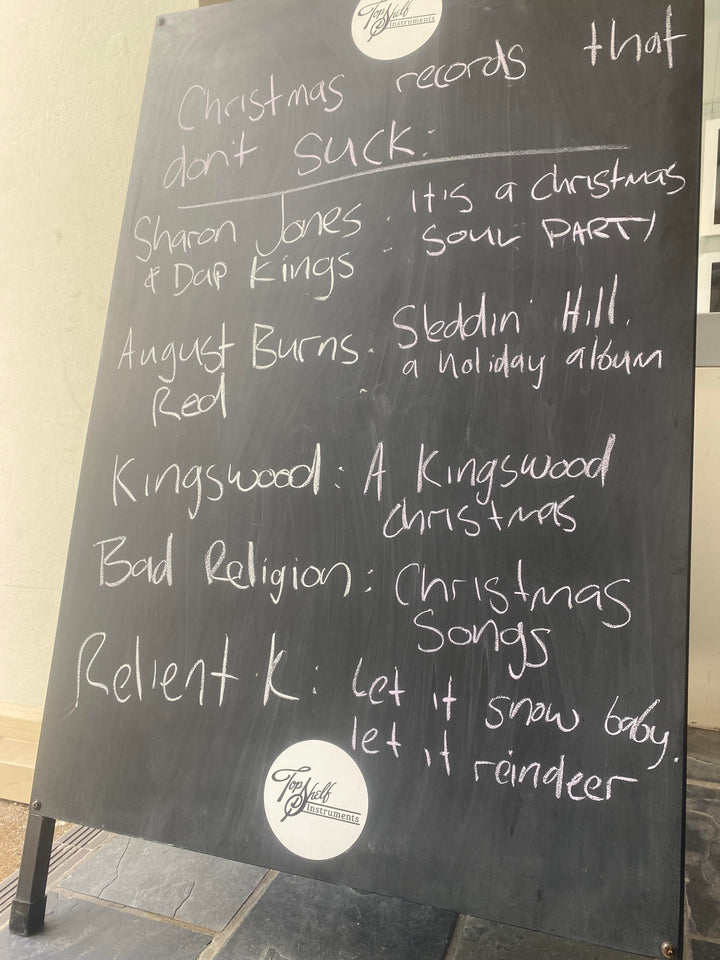 Top Shelf
Instruments
Christmas records that
don't suck:
Sharon Jones : It's a Christmas
& Dap Kings - Soul PARTY
August Burns : Sleddin' Hill.
Red a holiday album
Kingswood : A Kingswood
Christmas
Bad Religion : Christmas
Songs
Relient K : Let it snow baby.
let it reindeer
Top Shelf
Instruments